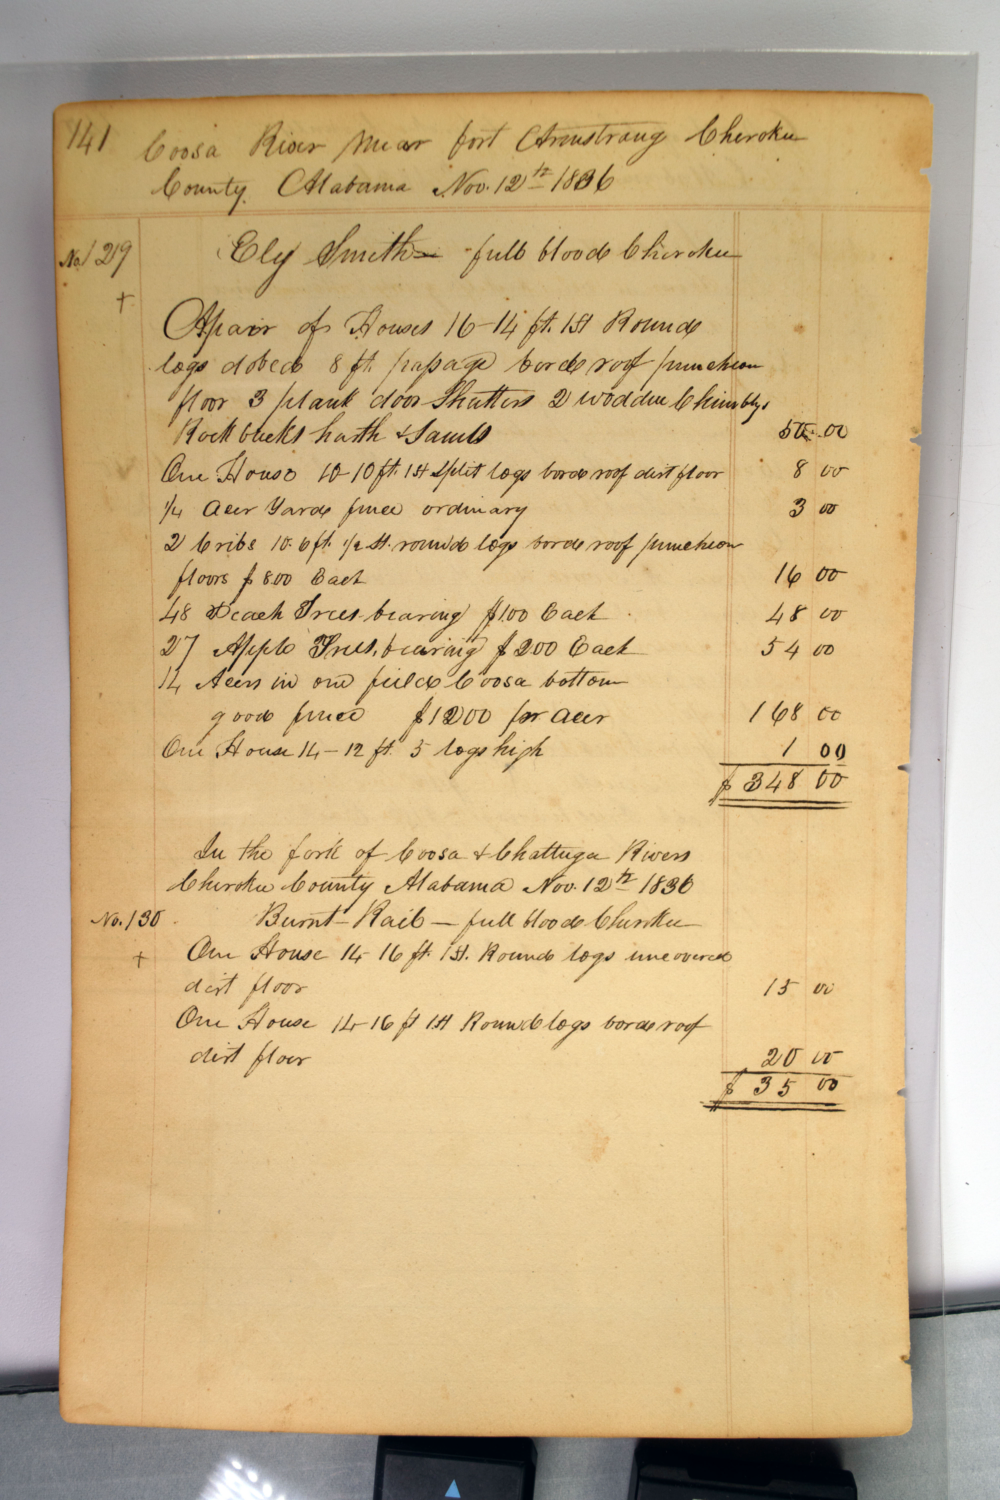 141 Coosa River Near fort Armstrong Cherokee
County Alabama Nov. 12th 1836
No. 129 Ely Smith – full blood Cherokee
+
A pair of Houses 16–14 ft. 1 St Round
logs dobed 8 ft. passage bord roof puncheon
floor 3 plank door Shutters 2 wodden Chimblys
Rock backs harth & Jambs 50 00
One House 10–10 ft. 1 St Split logs bord roof dirt floor 8 00
1/4 Acer Yard fence ordinary 3 00
2 Cribs 10. 6 ft. 1/2 St. round logs bord roof puncheon
floors $8 00 Each 16 00
48 Peach Trees bearing $1.00 Each 48 00
27 Apple Trees, bearing $2 00 Each 54 00
14 Acers in one field Coosa bottom
good fence $12 00 per acer 168 00
One House 14–12 ft. 5 logs high 1 00
$ 348 00
In the fork of Coosa & Chattuga Rivers
Cherokee County Alabama Nov. 12th 1836
No. 130 Burnt Rail – full blood Cherokee
+ One House 14–16 ft. 1 St. Round logs uncovered
dirt floor 15 00
One House 14–16 ft 1 St Round logs bord roof
dirt floor 20 00
$ 35 00